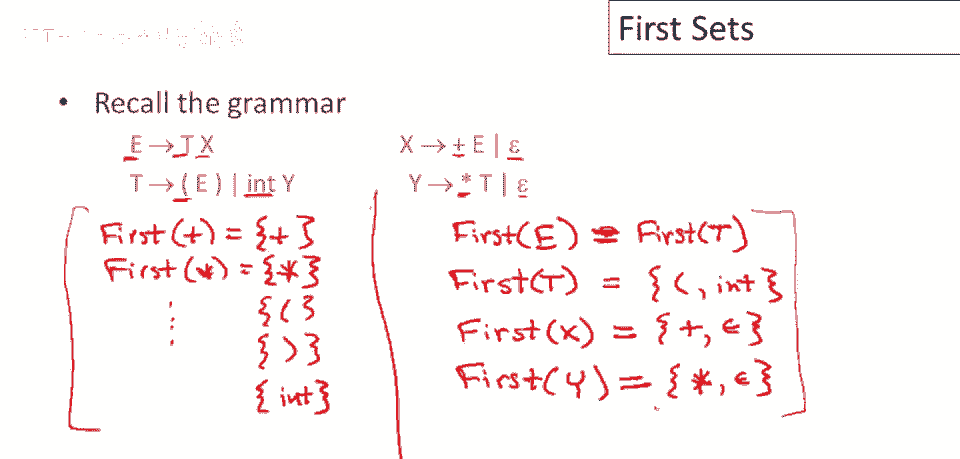 First Sets
• Recall the grammar
E → T X
X → + E | ε
T → ( E ) | int Y
Y → * T | ε
First(+) = {+}
First(*) = {*}
⋮ {(}
{)}
{int}
First(E) = First(T)
First(T) = {(, int}
First(X) = {+, ε}
First(Y) = {*, ε}